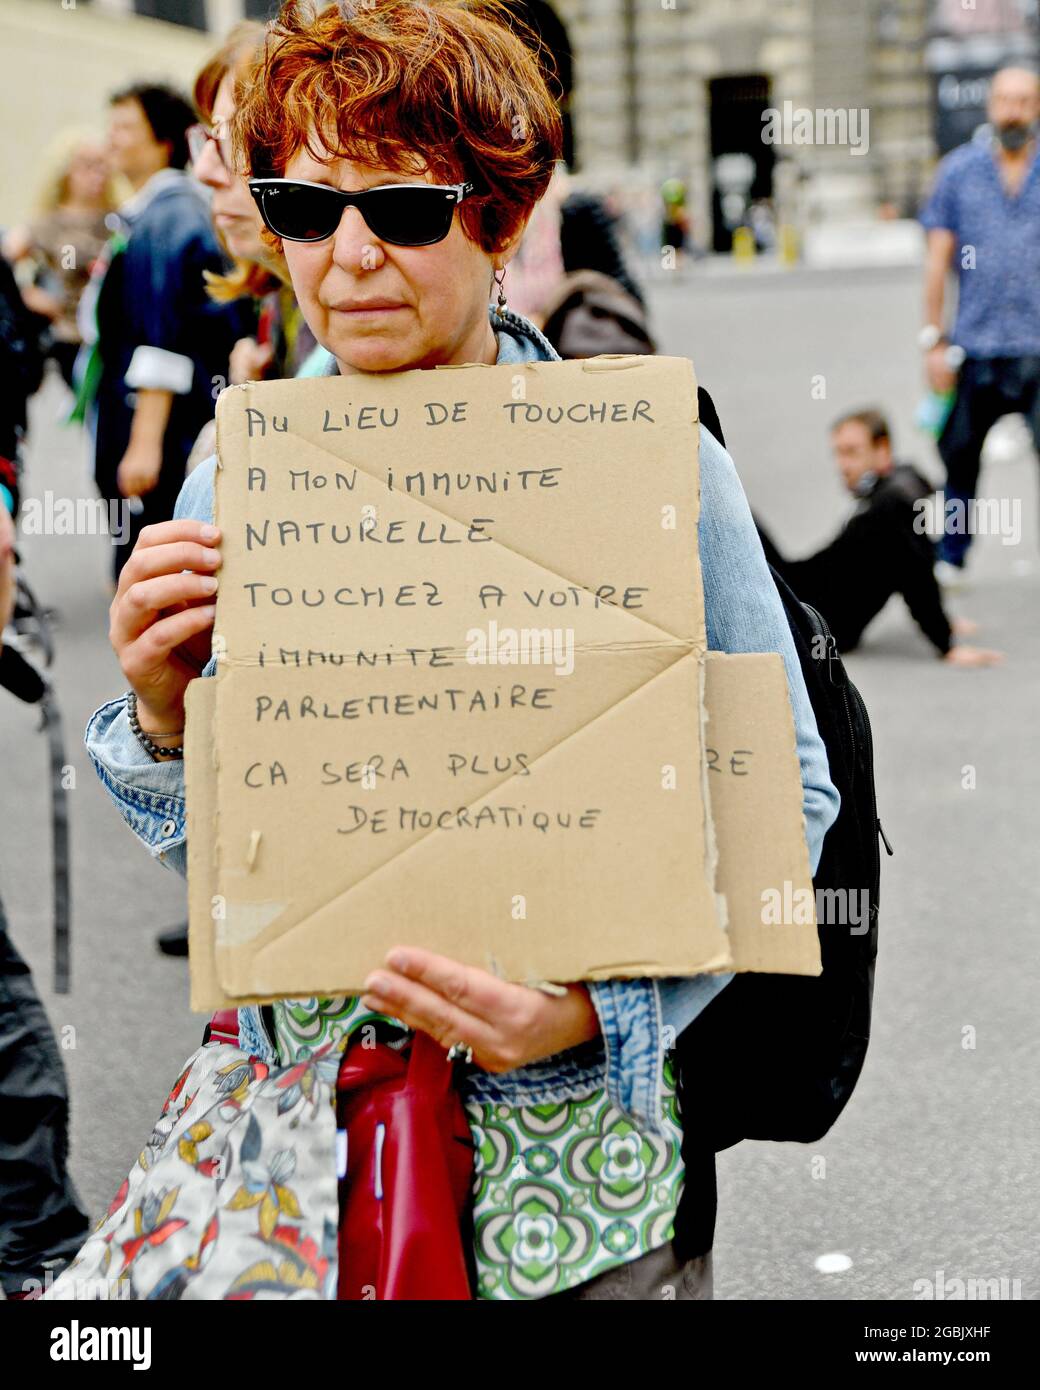 AU LIEU DE TOUCHER
A MON IMMUNITE
NATURELLE
TOUCHEZ A VOTRE
IMMUNITE
PARLEMENTAIRE
CA SERA PLUS
DEMOCRATIQUE
RE
Ray-Ban
alamy
alamy
Image ID: 2GBJXHF
www.alamy.com